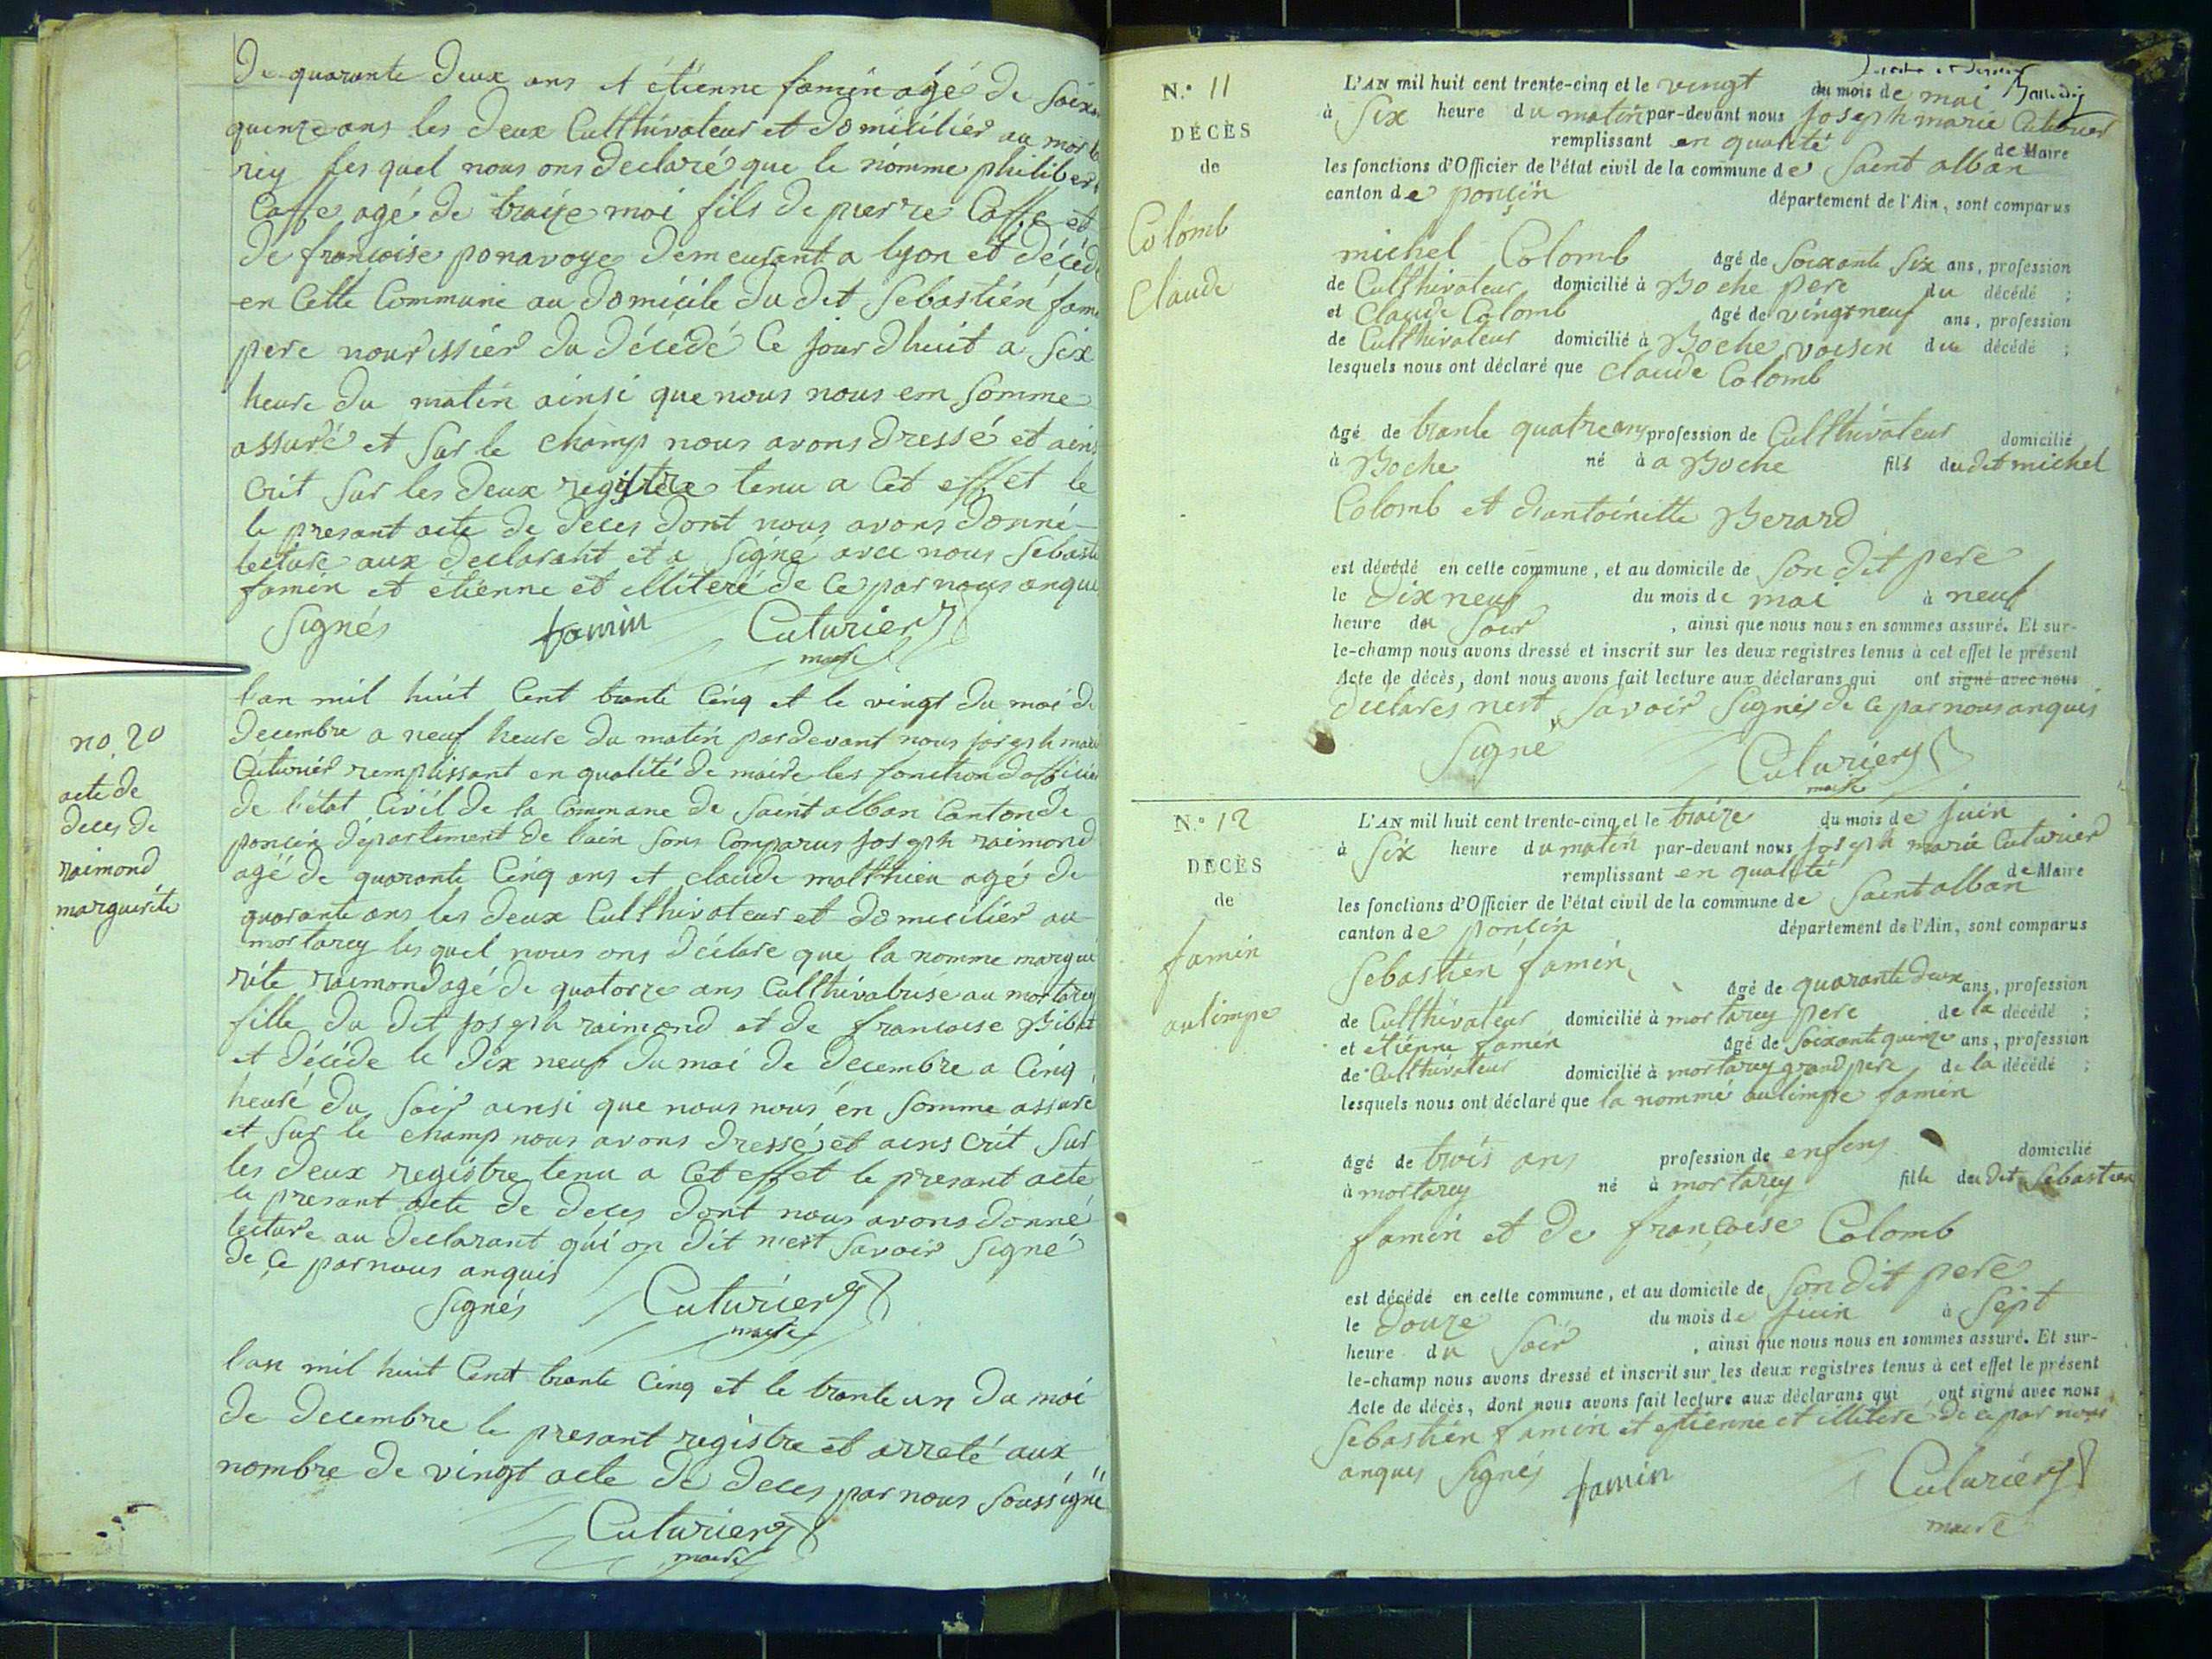 de quarante deux ans et étienne famin agé de soix
quinze ans les deux Culthivateur et domicilier au morta
rey les quel nous ons declaré que le nomme philibert
Caffe agé de traize moi fils de pierre Caffe et
de francoise ponavoye demeurant a lyon et décédé
en Cette Commune au domicile du dit Sebastien fami
pere nourissier du décedé Ce jour dhuit a Six
heure du matin ainsi que nous nous em Somme
assuré et Sur le champ nous avons dressé et ains
Crit Sur les deux registre tenu a Cet effet le
le presant acte de deces dont nous avons donné
lecture aux declarant et a Signé avec nous Sebasti
famin et étienne et elliteré de Ce par nous anqui
Signés famin Cuturier
maire
lan mil huit Cent trante Cinq et le vingt du moi de
decembre a neuf heure du matin pardevant nous joseph marie
Cuturier remplissant en qualité de maire les fonction dofficier
de létat Civil de la Commane de Saint alban Canton de
poncin département de lain Sons Comparus joseph raimond
agé de quarante Cinq ans et claude malthieu agé de
quarante ans les deux Culthivateur et domicilier au
mortarey les quel nous ons déclare que la nomme margue
rite raimond agé de quatorze ans Culthivatrise au mortarey
fille du dit joseph raimond et de francoise Bibet
et décéde le dix neuf du moi de decembre a Cinq
heure du Soir ainsi que nous nous en Somme assuré
et Sur le champ nous avons dressé et ains crit Sur
les deux registre tenu a Cet effet le presant acte
le presant acte de deces dont nous avons donné
lecture au declarant qui on dit n'est Savoir Signé
de Ce par nous anquis
Signés Cuturier
maire
lan mil huit Cent trante Cinq et le trante un du moi
de decembre le presant registre et arreté aux
nombre de vingt acte de deces par nous Soussigné
Cuturier
maire
no. 20
acte de
deces de
raimond
marguerite
N.° 11
DÉCÈS
de
Colomb
Claude
L'AN mil huit cent trente-cinq et le vingt du mois de mai
à Six heure du matin par-devant nous joseph marie Cuturier
remplissant en qualité de Maire
les fonctions d'Officier de l'état civil de la commune de Saint alban
canton de poncin département de l'Ain, sont comparus
michel Colomb âgé de Soixante Six ans, profession
de Culthivateur domicilié à Boche pere du décédé ;
et Claude Colomb âgé de vingt neuf ans, profession
de Culthivateur domicilié à Boche voisin du décédé ;
lesquels nous ont déclaré que Claude Colomb
âgé de trante quatre ans profession de Culthivateur domicilié
à Boche né à a Boche fils du dit michel
Colomb et dantoinette Berard
est décédé en cette commune, et au domicile de Son dit pere
le Dix neuf du mois de mai à neuf
heure du Soir , ainsi que nous nous en sommes assuré. Et sur-
le-champ nous avons dressé et inscrit sur les deux registres tenus à cet effet le présent
Acte de décès, dont nous avons fait lecture aux déclarans qui ont signé avec nous
declares nest Savoir Signés de Ce par nous anquis
Signé Cuturier
maire
N.° 12
DÉCÈS
de
famin
aulimpe
L'AN mil huit cent trente-cinq et le traize du mois de juin
à Six heure du matin par-devant nous joseph marie Cuturier
remplissant en qualité de Maire
les fonctions d'Officier de l'état civil de la commune de Saint alban
canton de poncin département de l'Ain, sont comparus
Sebastien famin âgé de quarante deux ans, profession
de Culthivateur domicilié à mortarey pere de la décédé ;
et etiénne famin âgé de Soixante quinze ans, profession
de Culthivateur domicilié à mortarey grand pere de la décédé ;
lesquels nous ont déclaré que la nommé aulimpe famin
âgé de trois ans profession de enfens domicilié
à mortarey né à mortarey fille du dit Sebastien
famin et de francoise Colomb
est décédé en cette commune, et au domicile de Son dit pere
le douze du mois de juin à Sept
heure du Soir , ainsi que nous nous en sommes assuré. Et sur-
le-champ nous avons dressé et inscrit sur les deux registres tenus à cet effet le présent
Acte de décès, dont nous avons fait lecture aux déclarans qui ont signé avec nous
Sebastien famin et etienne et elliteré de ce par nous
anquis Signés famin Cuturier
maire